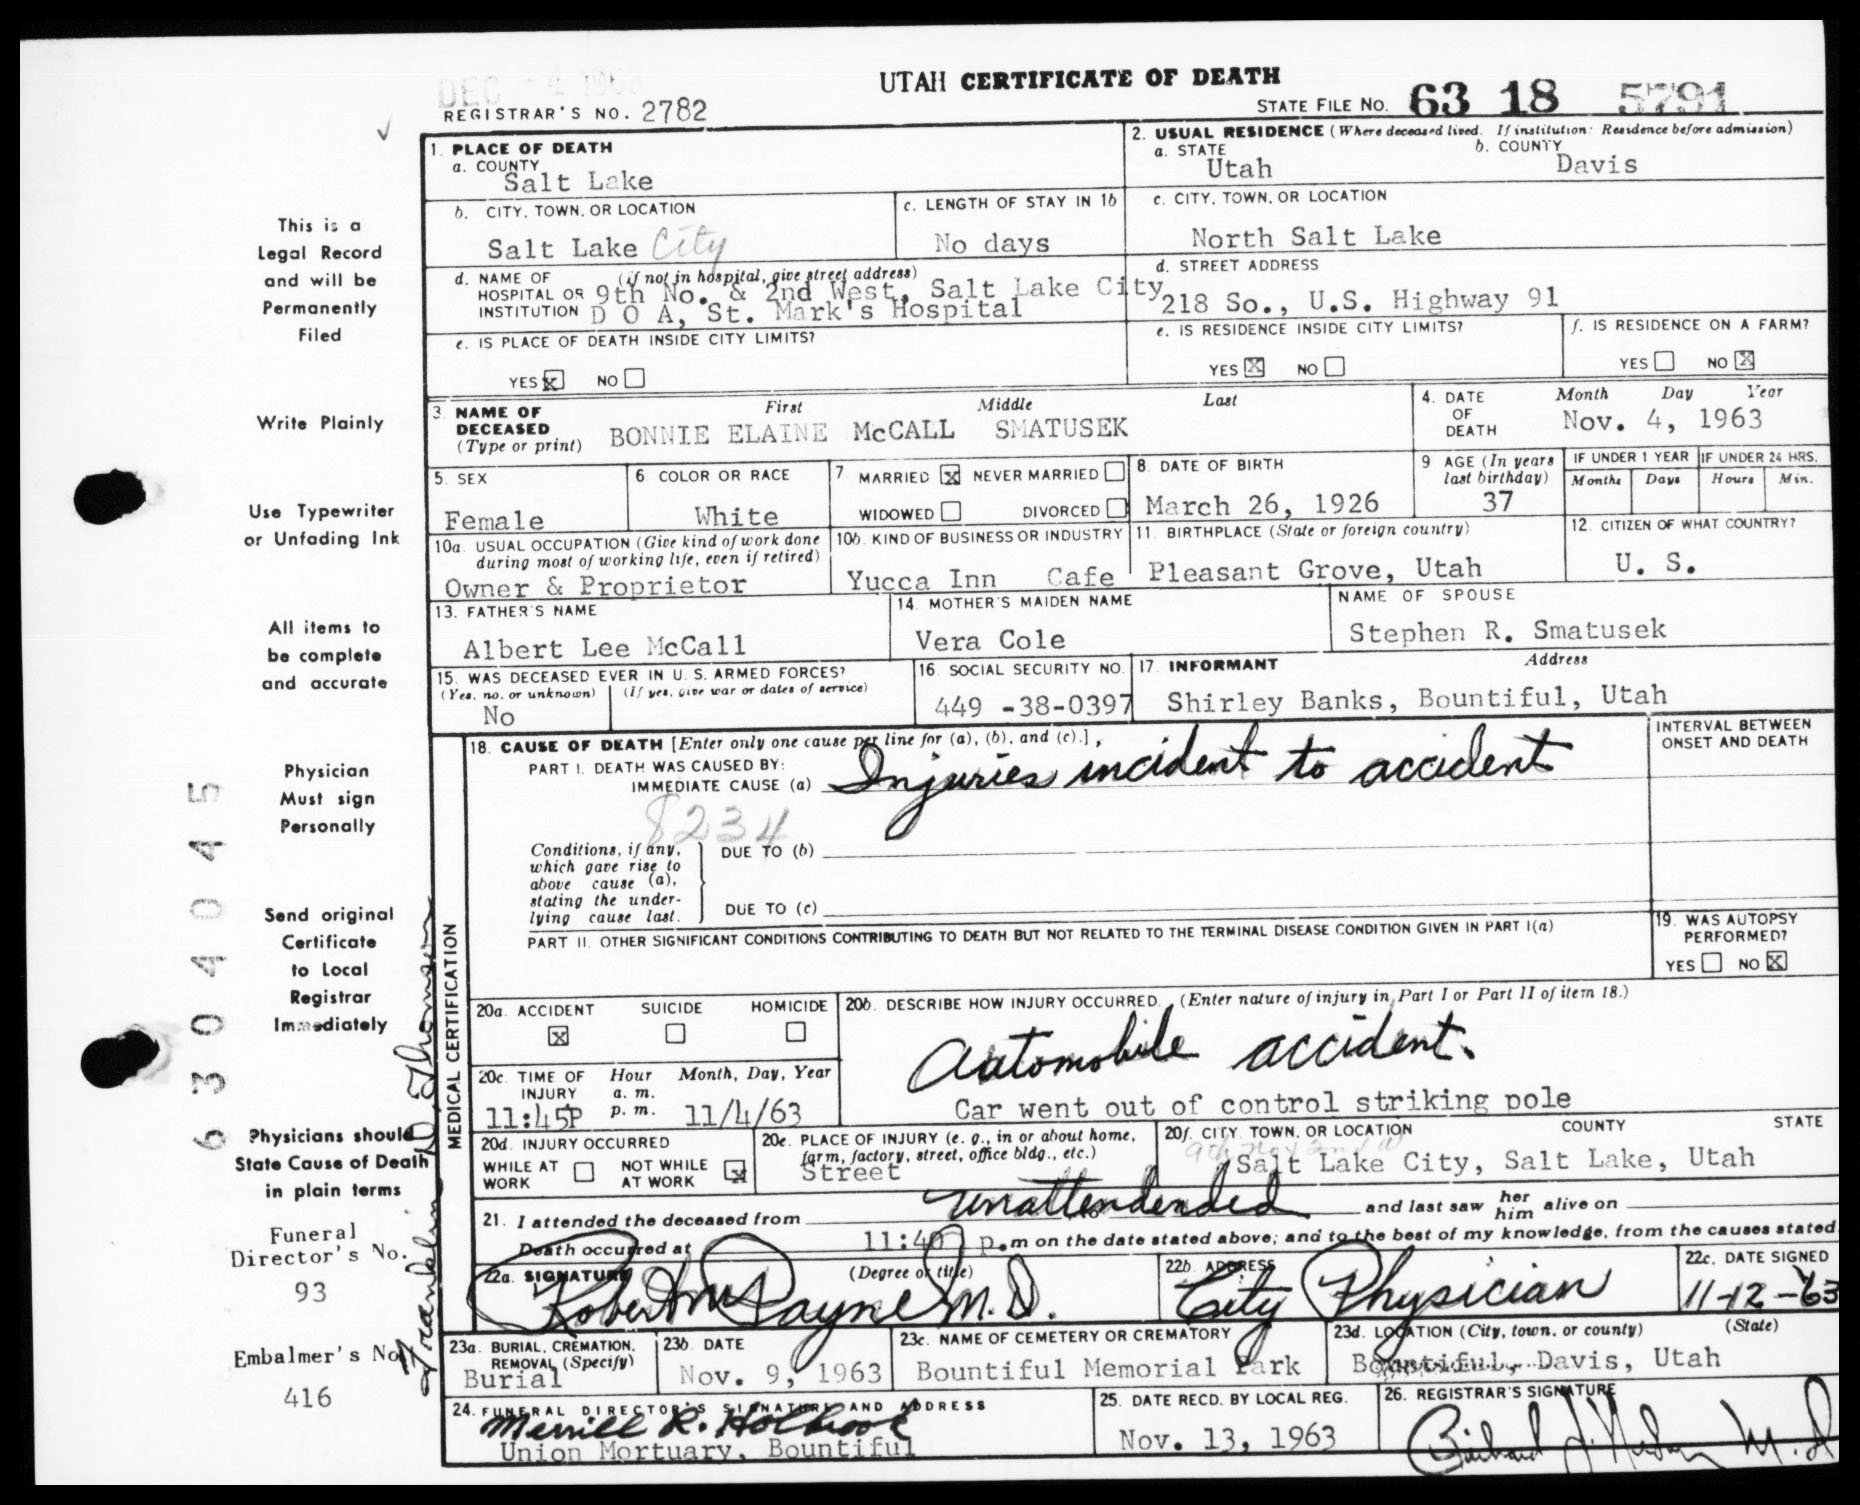 DEC 4 196
UTAH CERTIFICATE OF DEATH
REGISTRAR'S NO. 2782
STATE FILE NO. 63 18 5791
1. PLACE OF DEATH
a. COUNTY
Salt Lake
2. USUAL RESIDENCE (Where deceased lived. If institution: Residence before admission)
a. STATE
Utah
b. COUNTY
Davis
b. CITY, TOWN, OR LOCATION
Salt Lake City
c. LENGTH OF STAY IN 1b
No days
c. CITY, TOWN, OR LOCATION
North Salt Lake
d. NAME OF HOSPITAL OR INSTITUTION (if not in hospital, give street address)
9th No. & 2nd West, Salt Lake City
D O A, St. Mark's Hospital
d. STREET ADDRESS
218 So., U.S. Highway 91
e. IS PLACE OF DEATH INSIDE CITY LIMITS?
YES x NO
e. IS RESIDENCE INSIDE CITY LIMITS?
YES X NO
f. IS RESIDENCE ON A FARM?
YES NO X
3. NAME OF DECEASED (Type or print)
First Middle Last
BONNIE ELAINE McCALL SMATUSEK
4. DATE OF DEATH
Month Day Year
Nov. 4, 1963
5. SEX
Female
6 COLOR OR RACE
White
7 MARRIED X NEVER MARRIED
WIDOWED DIVORCED
8. DATE OF BIRTH
March 26, 1926
9 AGE (In years last birthday)
37
IF UNDER 1 YEAR
Months Days
IF UNDER 24 HRS.
Hours Min.
10a. USUAL OCCUPATION (Give kind of work done during most of working life, even if retired)
Owner & Proprietor
10b. KIND OF BUSINESS OR INDUSTRY
Yucca Inn Cafe
11. BIRTHPLACE (State or foreign country)
Pleasant Grove, Utah
12. CITIZEN OF WHAT COUNTRY?
U. S.
13. FATHER'S NAME
Albert Lee McCall
14. MOTHER'S MAIDEN NAME
Vera Cole
NAME OF SPOUSE
Stephen R. Smatusek
15. WAS DECEASED EVER IN U. S. ARMED FORCES?
(Yes, no, or unknown) (If yes, give war or dates of service)
No
16. SOCIAL SECURITY NO.
449 -38-0397
17. INFORMANT Address
Shirley Banks, Bountiful, Utah
18. CAUSE OF DEATH [Enter only one cause per line for (a), (b), and (c).]
PART I. DEATH WAS CAUSED BY:
IMMEDIATE CAUSE (a) Injuries incident to accident
8234
INTERVAL BETWEEN ONSET AND DEATH
Conditions, if any, which gave rise to above cause (a), stating the underlying cause last.
DUE TO (b)
DUE TO (c)
PART II. OTHER SIGNIFICANT CONDITIONS CONTRIBUTING TO DEATH BUT NOT RELATED TO THE TERMINAL DISEASE CONDITION GIVEN IN PART I(a)
19. WAS AUTOPSY PERFORMED?
YES NO X
MEDICAL CERTIFICATION
20a. ACCIDENT SUICIDE HOMICIDE
X
20b. DESCRIBE HOW INJURY OCCURRED. (Enter nature of injury in Part I or Part II of item 18.)
Automobile accident.
Car went out of control striking pole
20c. TIME OF INJURY Hour a. m. p. m. Month, Day, Year
11:45P 11/4/63
20d. INJURY OCCURRED
WHILE AT WORK NOT WHILE AT WORK x
20e. PLACE OF INJURY (e. g., in or about home, farm, factory, street, office bldg., etc.)
Street
20f. CITY, TOWN, OR LOCATION COUNTY STATE
Salt Lake City, Salt Lake, Utah
21. I attended the deceased from unattendended and last saw her him alive on
Death occurred at 11:40 p.m on the date stated above; and to the best of my knowledge, from the causes stated
22a. SIGNATURE (Degree or title)
Robert M Payne M.D.
22b. ADDRESS
City Physician
22c. DATE SIGNED
11-12-63
23a. BURIAL, CREMATION, REMOVAL (Specify)
Burial
23b. DATE
Nov. 9, 1963
23c. NAME OF CEMETERY OR CREMATORY
Bountiful Memorial Park
23d. LOCATION (City, town, or county) (State)
Bountiful, Davis, Utah
24. FUNERAL DIRECTOR'S SIGNATURE AND ADDRESS
Merrill R. Holbrook
Union Mortuary, Bountiful
25. DATE RECD. BY LOCAL REG.
Nov. 13, 1963
26. REGISTRAR'S SIGNATURE
This is a
Legal Record
and will be
Permanently
Filed
Write Plainly
Use Typewriter
or Unfading Ink
All items to
be complete
and accurate
Physician
Must sign
Personally
Send original
Certificate
to Local
Registrar
Immediately
Physicians should
State Cause of Death
in plain terms
Funeral
Director's No.
93
Embalmer's No.
416
Franklin D. Thomson
6304045